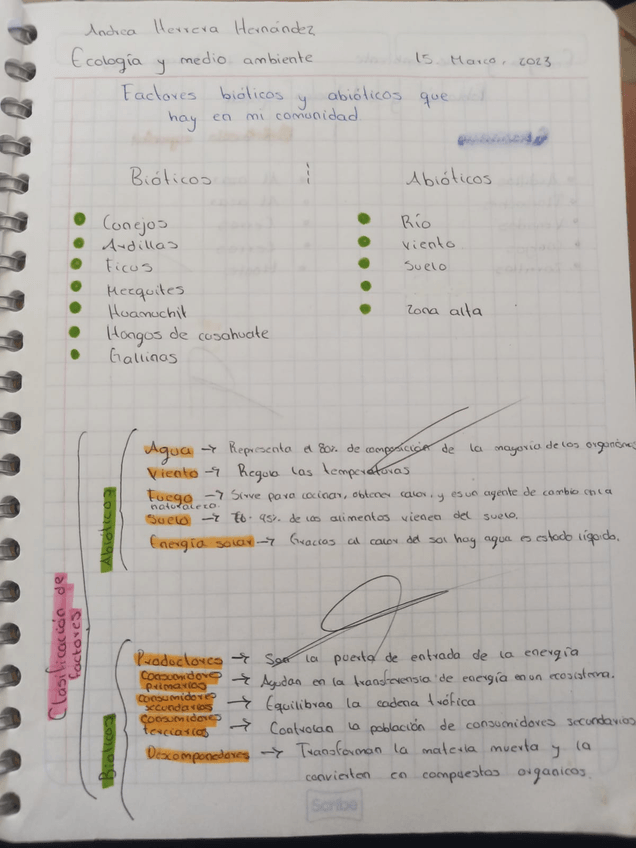 Andrea Herrera Hernández
Ecología y medio ambiente 15 Marzo, 2023
Factores bióticos y abióticos que
hay en mi comunidad.
Bióticos Abióticos
Conejos Río
Ardillas viento
Ficus suelo
Mezquites
Huamuchil zona alta
Hongos de casahuate
Gallinas
Clasificación de factores
Abióticos
Agua → Representa el 80% de composición de la mayoría de los organismos
Viento → Regula las temperaturas
Fuego → Sirve para cocinar, obtener calor, y es un agente de cambio en la
naturaleza
Suelo → 95% de los alimentos vienen del suelo.
Energía solar → Gracias al calor del sol hay agua es estado líquido.
Bioticos
Productores → Son la puerta de entrada de la energía
Consumidores primarios → Ayudan en la transferencia de energía en un ecosistema.
consumidores secundarios → Equilibran la cadena trófica
Consumidores terciarios → Controlan la población de consumidores secundarios
Descomponedores → Transforman la materia muerta y la
convierten en compuestos organicos.
Scribe